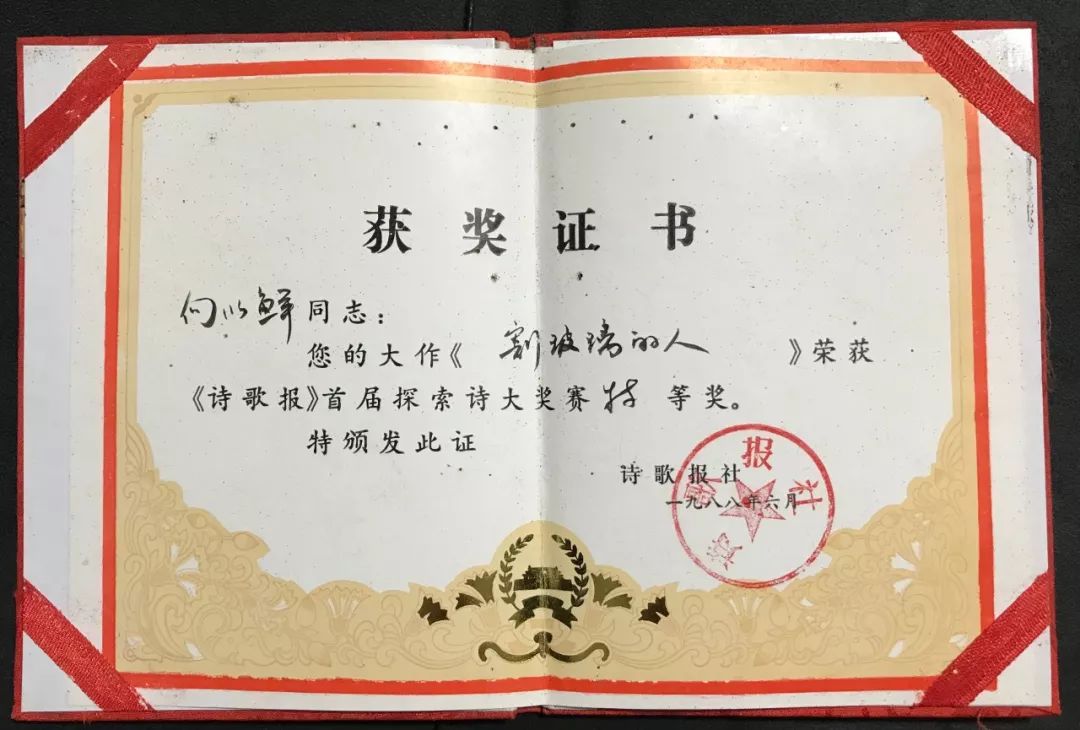 获奖证书
向以鲜同志：
您的大作《割玻璃的人》荣获
《诗歌报》首届探索诗大奖赛特等奖。
特颁发此证
诗歌报社
一九八八年六月
诗歌报社